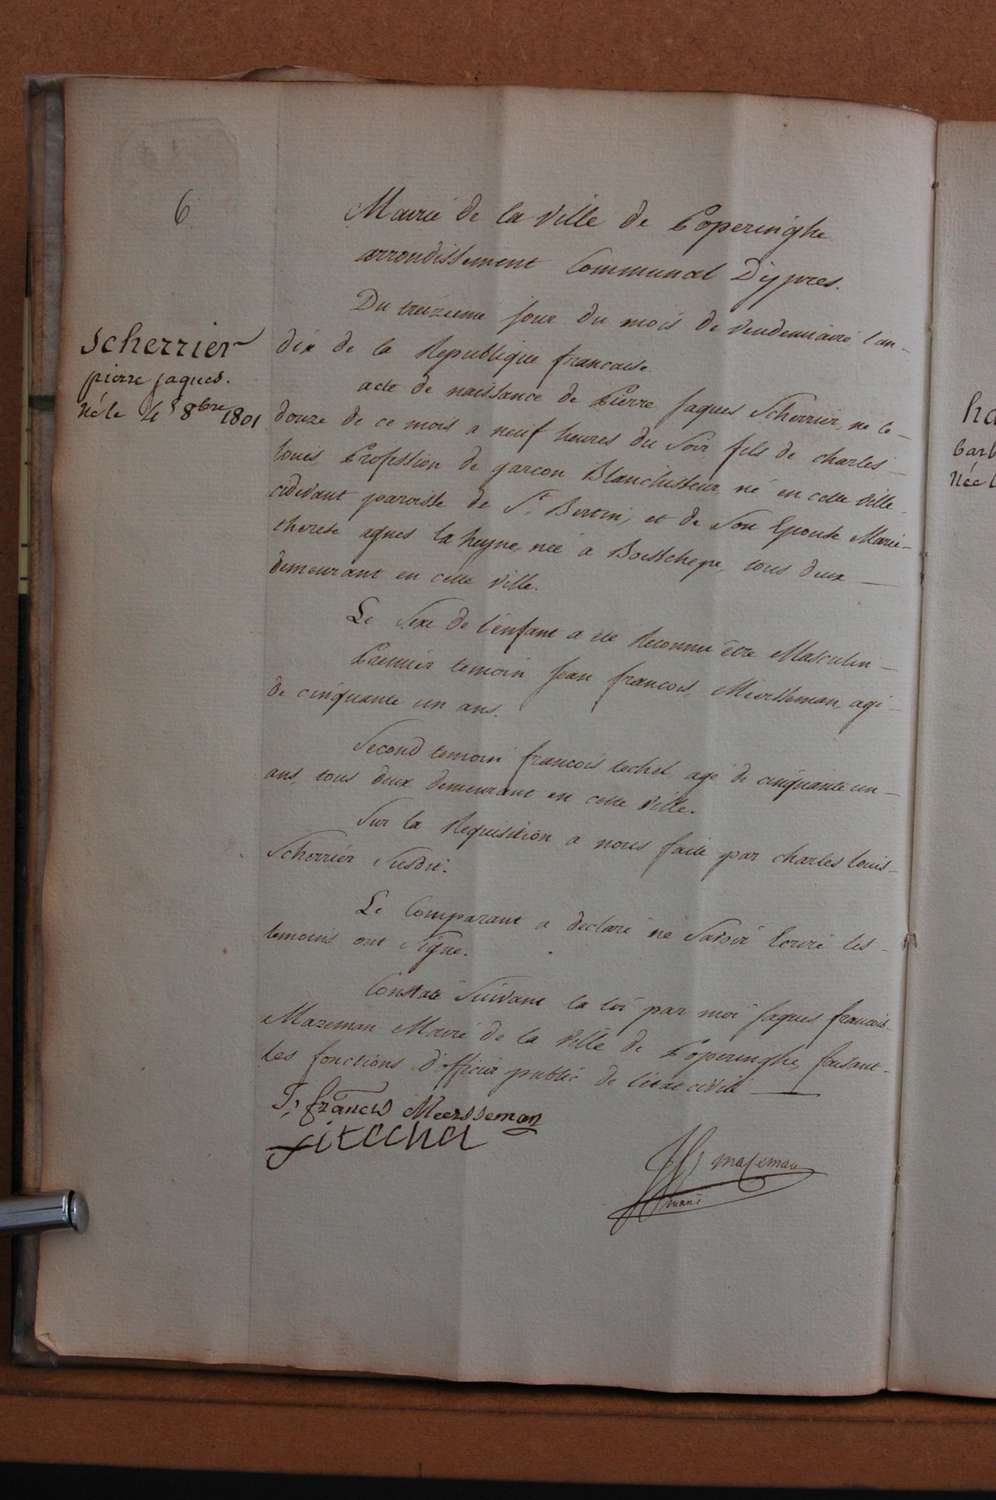 6
Scherrier
pierre jaques.
Né le 4 8bre 1801
Mairie de la ville de Poperinghe
arrondissement Communal Dijpres.
Du treizieme jour du mois de Vendemiaire l'an
dix de la Republique francaise
acte de naissance de Pierre Jaques Scherrier, ne le
douze de ce mois a neuf heures du soir fils de charles
louis Profession de garcon Blanchisseur né en cette ville
cidevant paroisse de St. Bertin, et de Son Epouse Marie
therese agnes la heyne, née a Boesschepe, tous deux
demeurant en cette ville.
Le Sexe de l'enfant a été Reconnu être Masculin
Premier temoin Jean francois Meersseman, agé
de cinquante un ans.
Second temoin francois tachel agé de cinquante un
ans, tous deux demeurant en cette ville.
Sur la Requisition a nous faite par charles louis
Scherrier Susdit.
Le Comparant a declaré ne Savoir Ecrire les
temoins ont Signé.
Constaté Suivant la loi par moi Jaques francois
Mazeman Maire de la ville de Poperinghe, faisant
les fonctions d'officier public de l'état civil
J, francis Meersseman
mazeman
maire
ha
barb
Née l